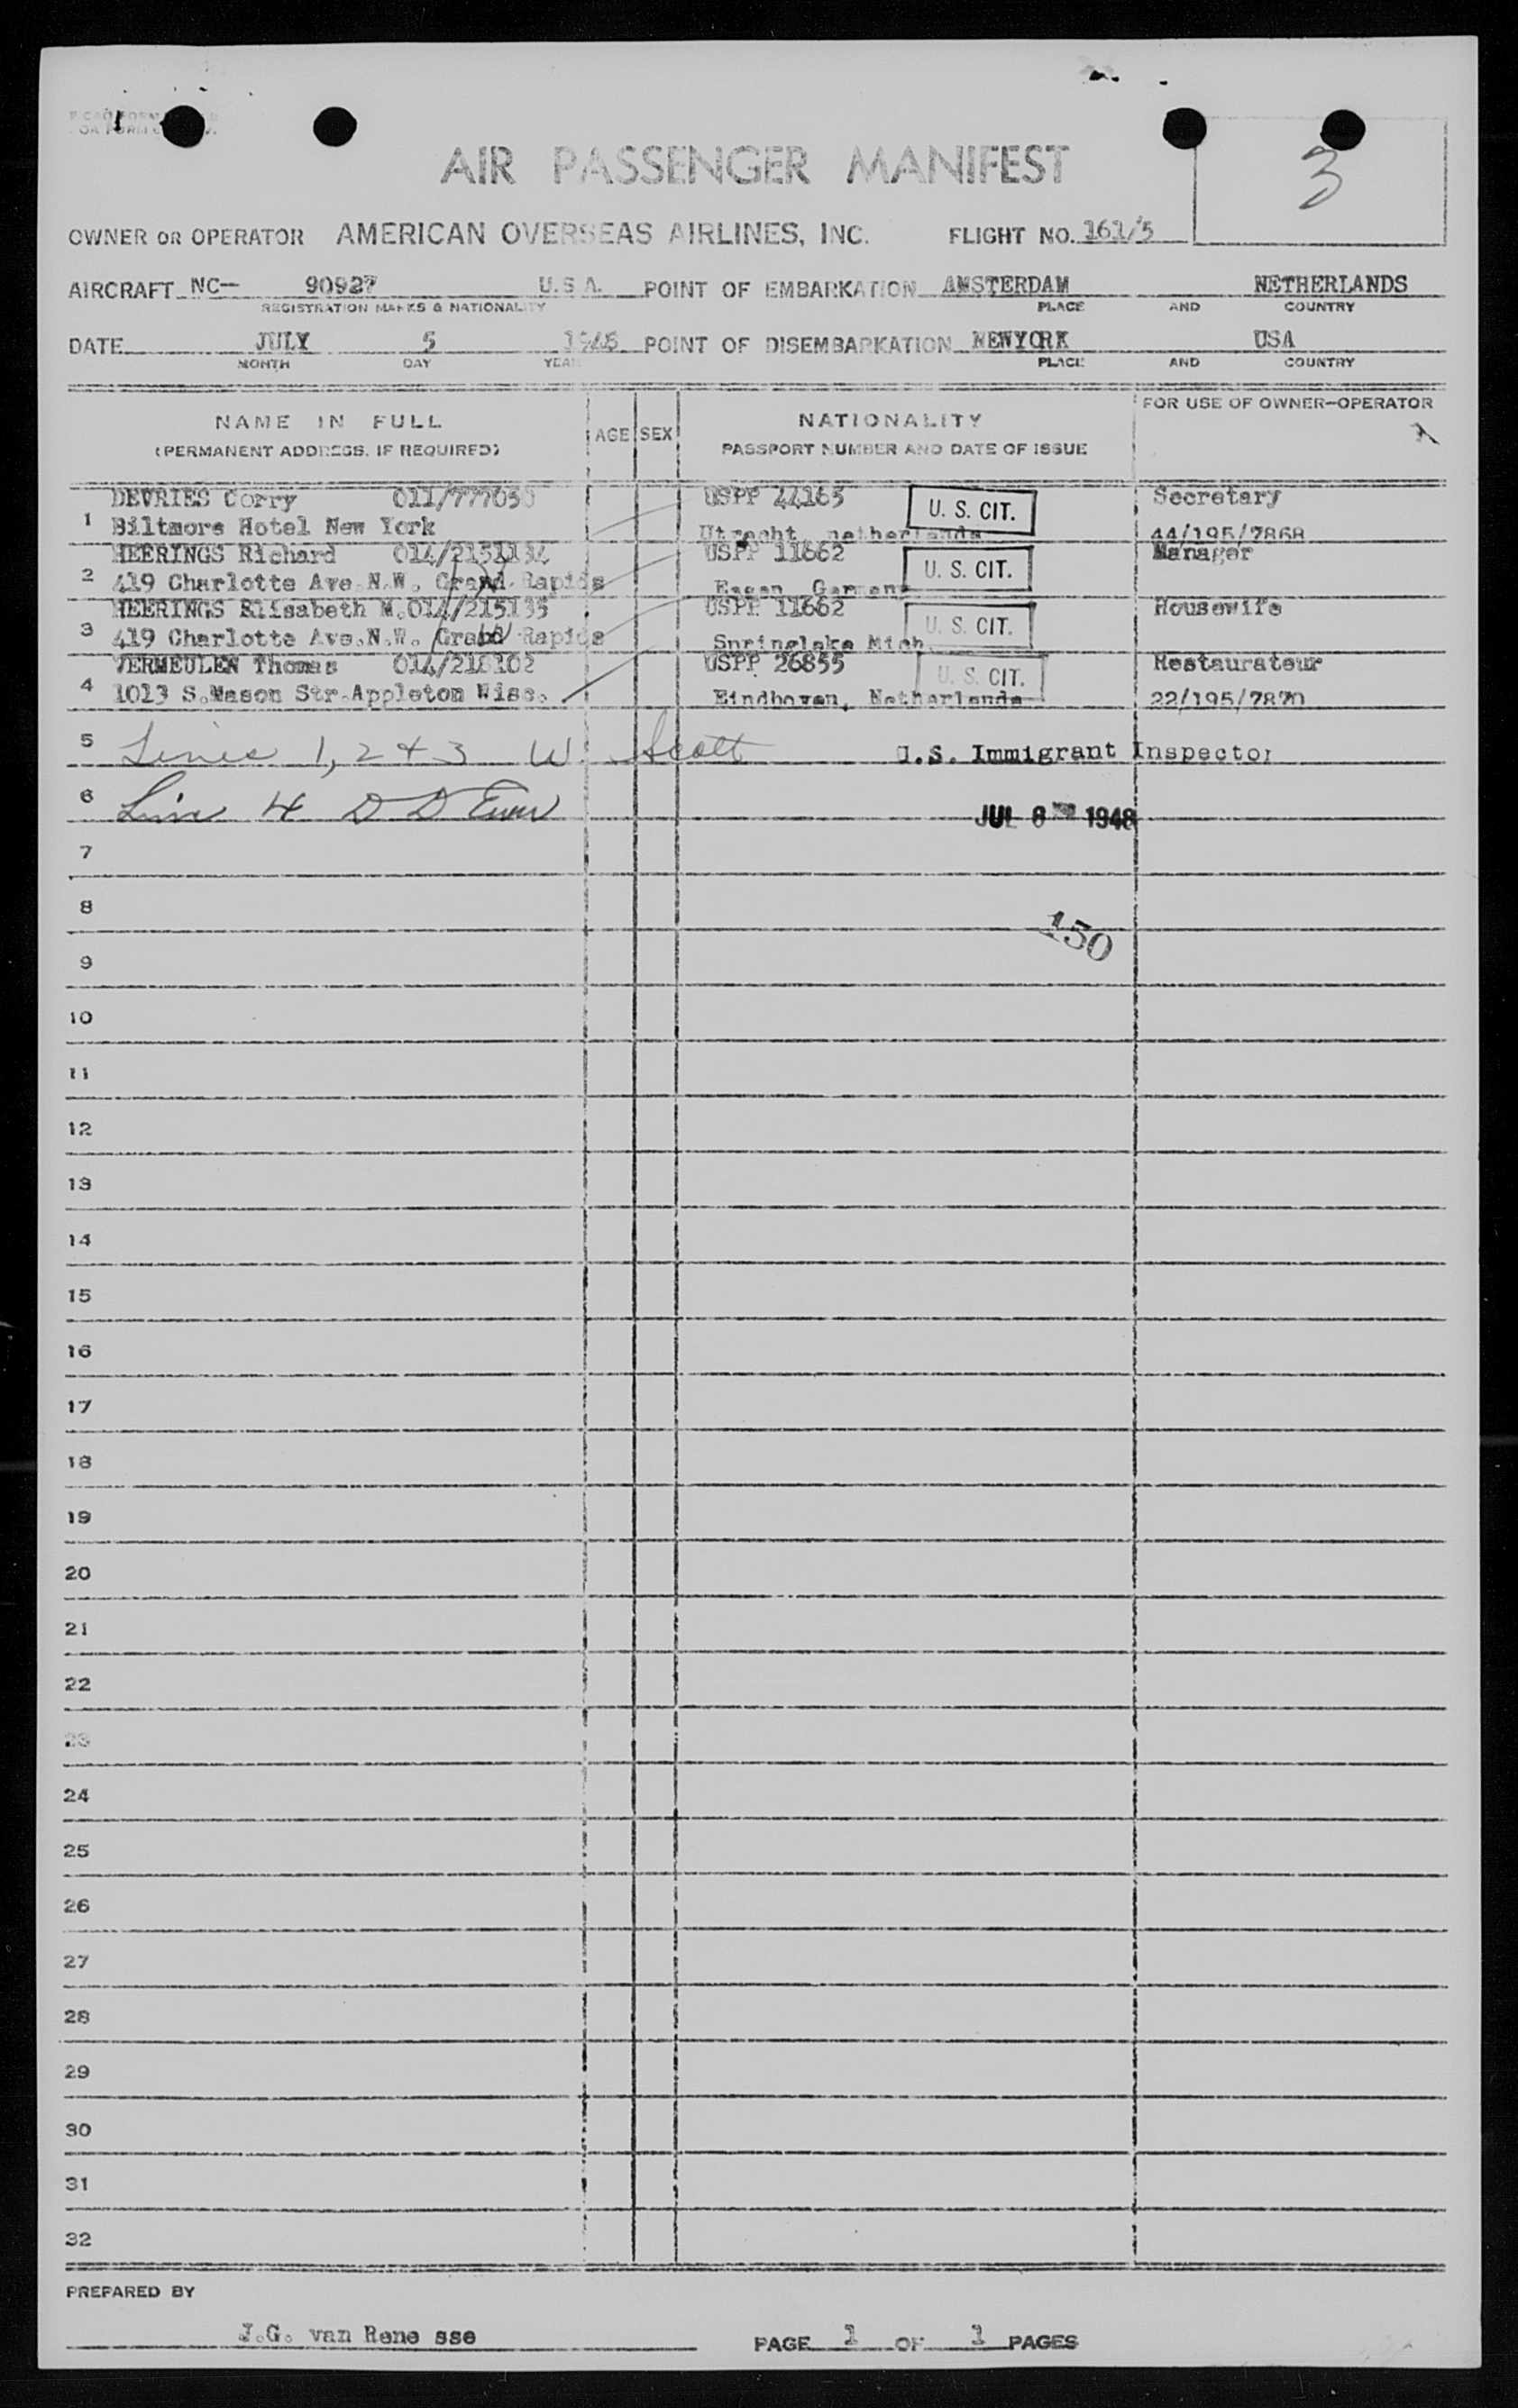 AIR PASSENGER MANIFEST
3
OWNER OR OPERATOR AMERICAN OVERSEAS AIRLINES, INC. FLIGHT NO. 161/5
AIRCRAFT NC- 90927 U.S.A. POINT OF EMBARKATION AMSTERDAM NETHERLANDS
REGISTRATION MARKS & NATIONALITY PLACE AND COUNTRY
DATE JULY 5 1948 POINT OF DISEMBARKATION NEWYORK USA
MONTH DAY YEAR PLACE AND COUNTRY
NAME IN FULL
(PERMANENT ADDRESS, IF REQUIRED)
AGE SEX
NATIONALITY
PASSPORT NUMBER AND DATE OF ISSUE
FOR USE OF OWNER-OPERATOR
DEVRIES Corry USPP 44163 U. S. CIT. Secretary
1 Biltmore Hotel New York Utrecht, netherlands 44/195/7868
HEERINGS Richard USPP 11662 U. S. CIT. Manager
2 419 Charlotte Ave N.W. Grand Rapids
HEERINGS Elisabeth M. 014/215135 USPP 11662 U. S. CIT. Housewife
3 419 Charlotte Ave.N.W. Grand Rapids Springlake Mich
VERMEULEN Thomas USPP 26855 U. S. CIT. Restaurateur
4 1013 S.Mason Str.Appleton Wisc. Eindhoven, Netherlands 22/195/7870
5 Lines 1, 2 + 3 W. Scott U.S. Immigrant Inspector
6 Line 4 D D JUL 6 1948
7
8
150
9
10
11
12
13
14
15
16
17
18
19
20
21
22
23
24
25
26
27
28
29
30
31
32
PREPARED BY
J.G. van Rene sse PAGE 1 OF 1 PAGES